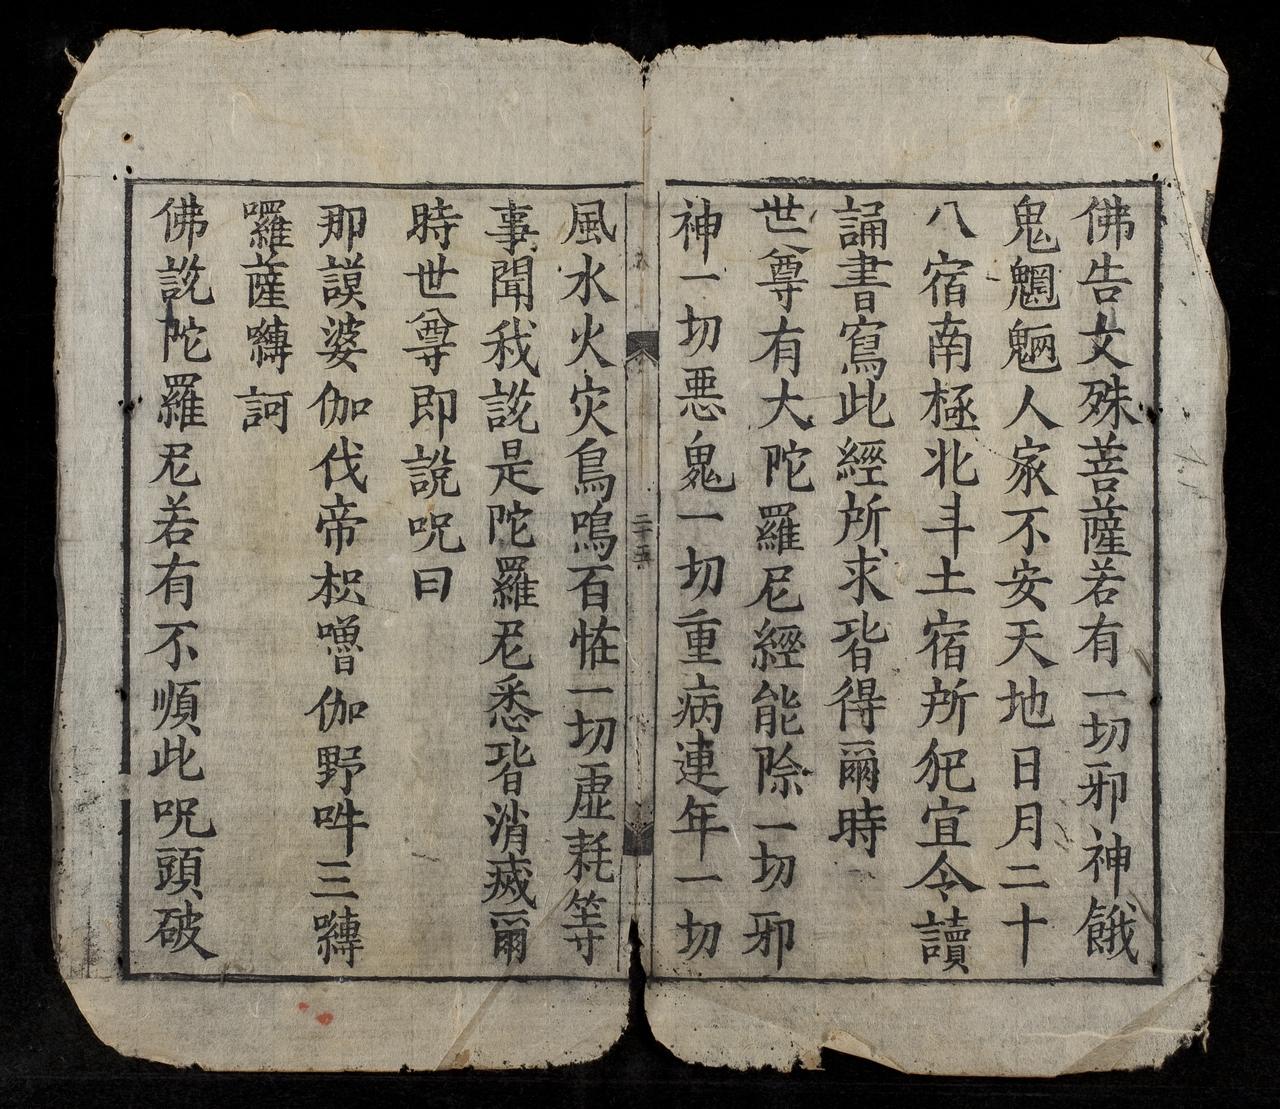 佛告文殊菩薩若有一切邪神餓
鬼魍魎人家不安天地日月二十
八宿南極北斗土宿所犯宜令讀
誦書寫此經所求皆得爾時
世尊有大陀羅尼經能除一切邪
神一切惡鬼一切重病連年一切
二十五
風水火灾鳥鳴百恠一切虛耗等
事聞我説是陀羅尼悉皆消滅爾
時世尊即說呪曰
那謨婆伽伐帝枳嚕伽野吽三囀
囉薩囀訶
佛説陀羅尼若有不順此呪頭破